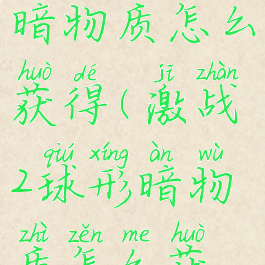 暗物质怎么
huò dé jī zhàn
获得(激战
qiú xíng àn wù
2球形暗物
zhì zěn me huò
质怎么获